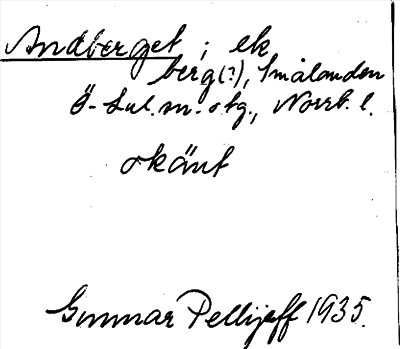 Andberget ; ek
berg(?), Smålanden
Ö-Lul. m. stg., Norrb. l.
okänt
Gunnar Pellijeff 1935.